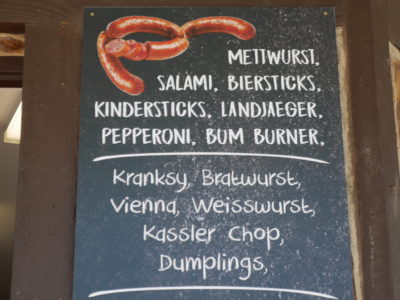 METTWURST,
SALAMI, BIERSTICKS,
KINDERSTICKS, LANDJAEGER,
PEPPERONI, BUM BURNER,
Kransky, Bratwurst,
Vienna, Weisswurst,
Kassler Chop,
Dumplings,